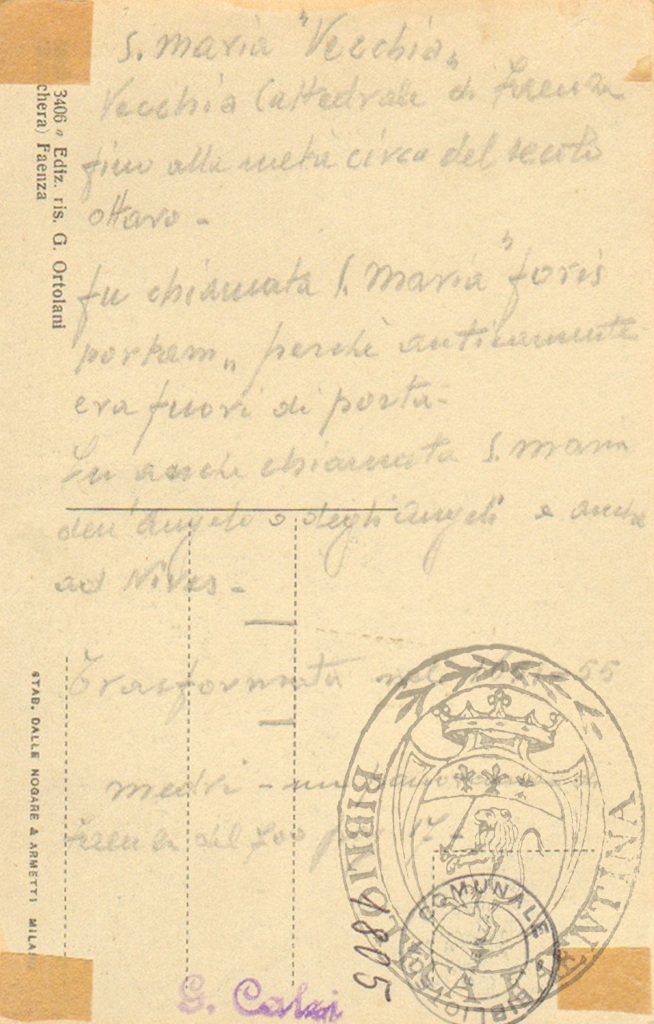 S. Maria "Vecchia"
Vecchia Cattedrale di Faenza
fino alla metà circa del secolo
ottavo -
fu chiamata S. Maria "foris
portam" perchè anticamente
era fuori di porta -
Fu anche chiamata S. Maria
dell'Angelo o degli Angeli e anche
ad Nives -
Trasformata nel 55
Medri -
Faenza del 200
3406 Ediz. ris. G. Ortolani
chera) Faenza
STAB. DALLE NOGARE & ARMETTI MILA
BIBLIO NTINA
COMUNALE
BIBLIO
1805
G. Calzi